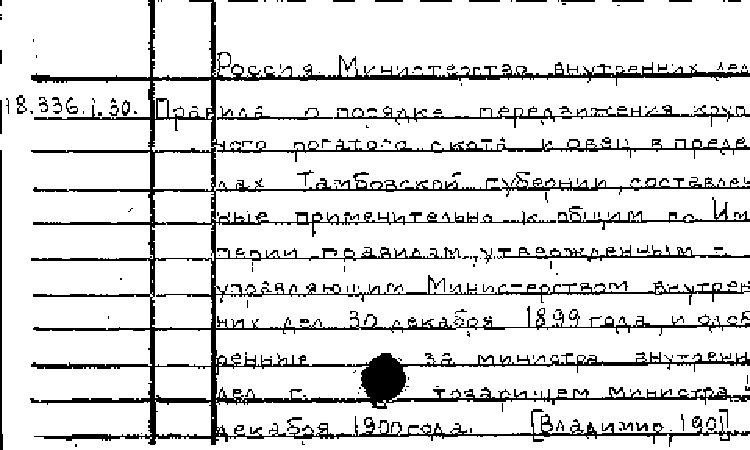 Россия Министерство внутренних дел
18.336.i.30. Правила о порядке передвижения круп
ного рогатого скота и овец в преде
лах Тамбовской губернии, составлен
ные применительно к общим по Им
перии правилам, утвержденным г.
управляющим Министерством внутрен
них дел 30 декабря 1899 года и одоб
ренные за министра внутренних
дел г. товарищем министра
декабря 1900 года. [Владимир, 190]